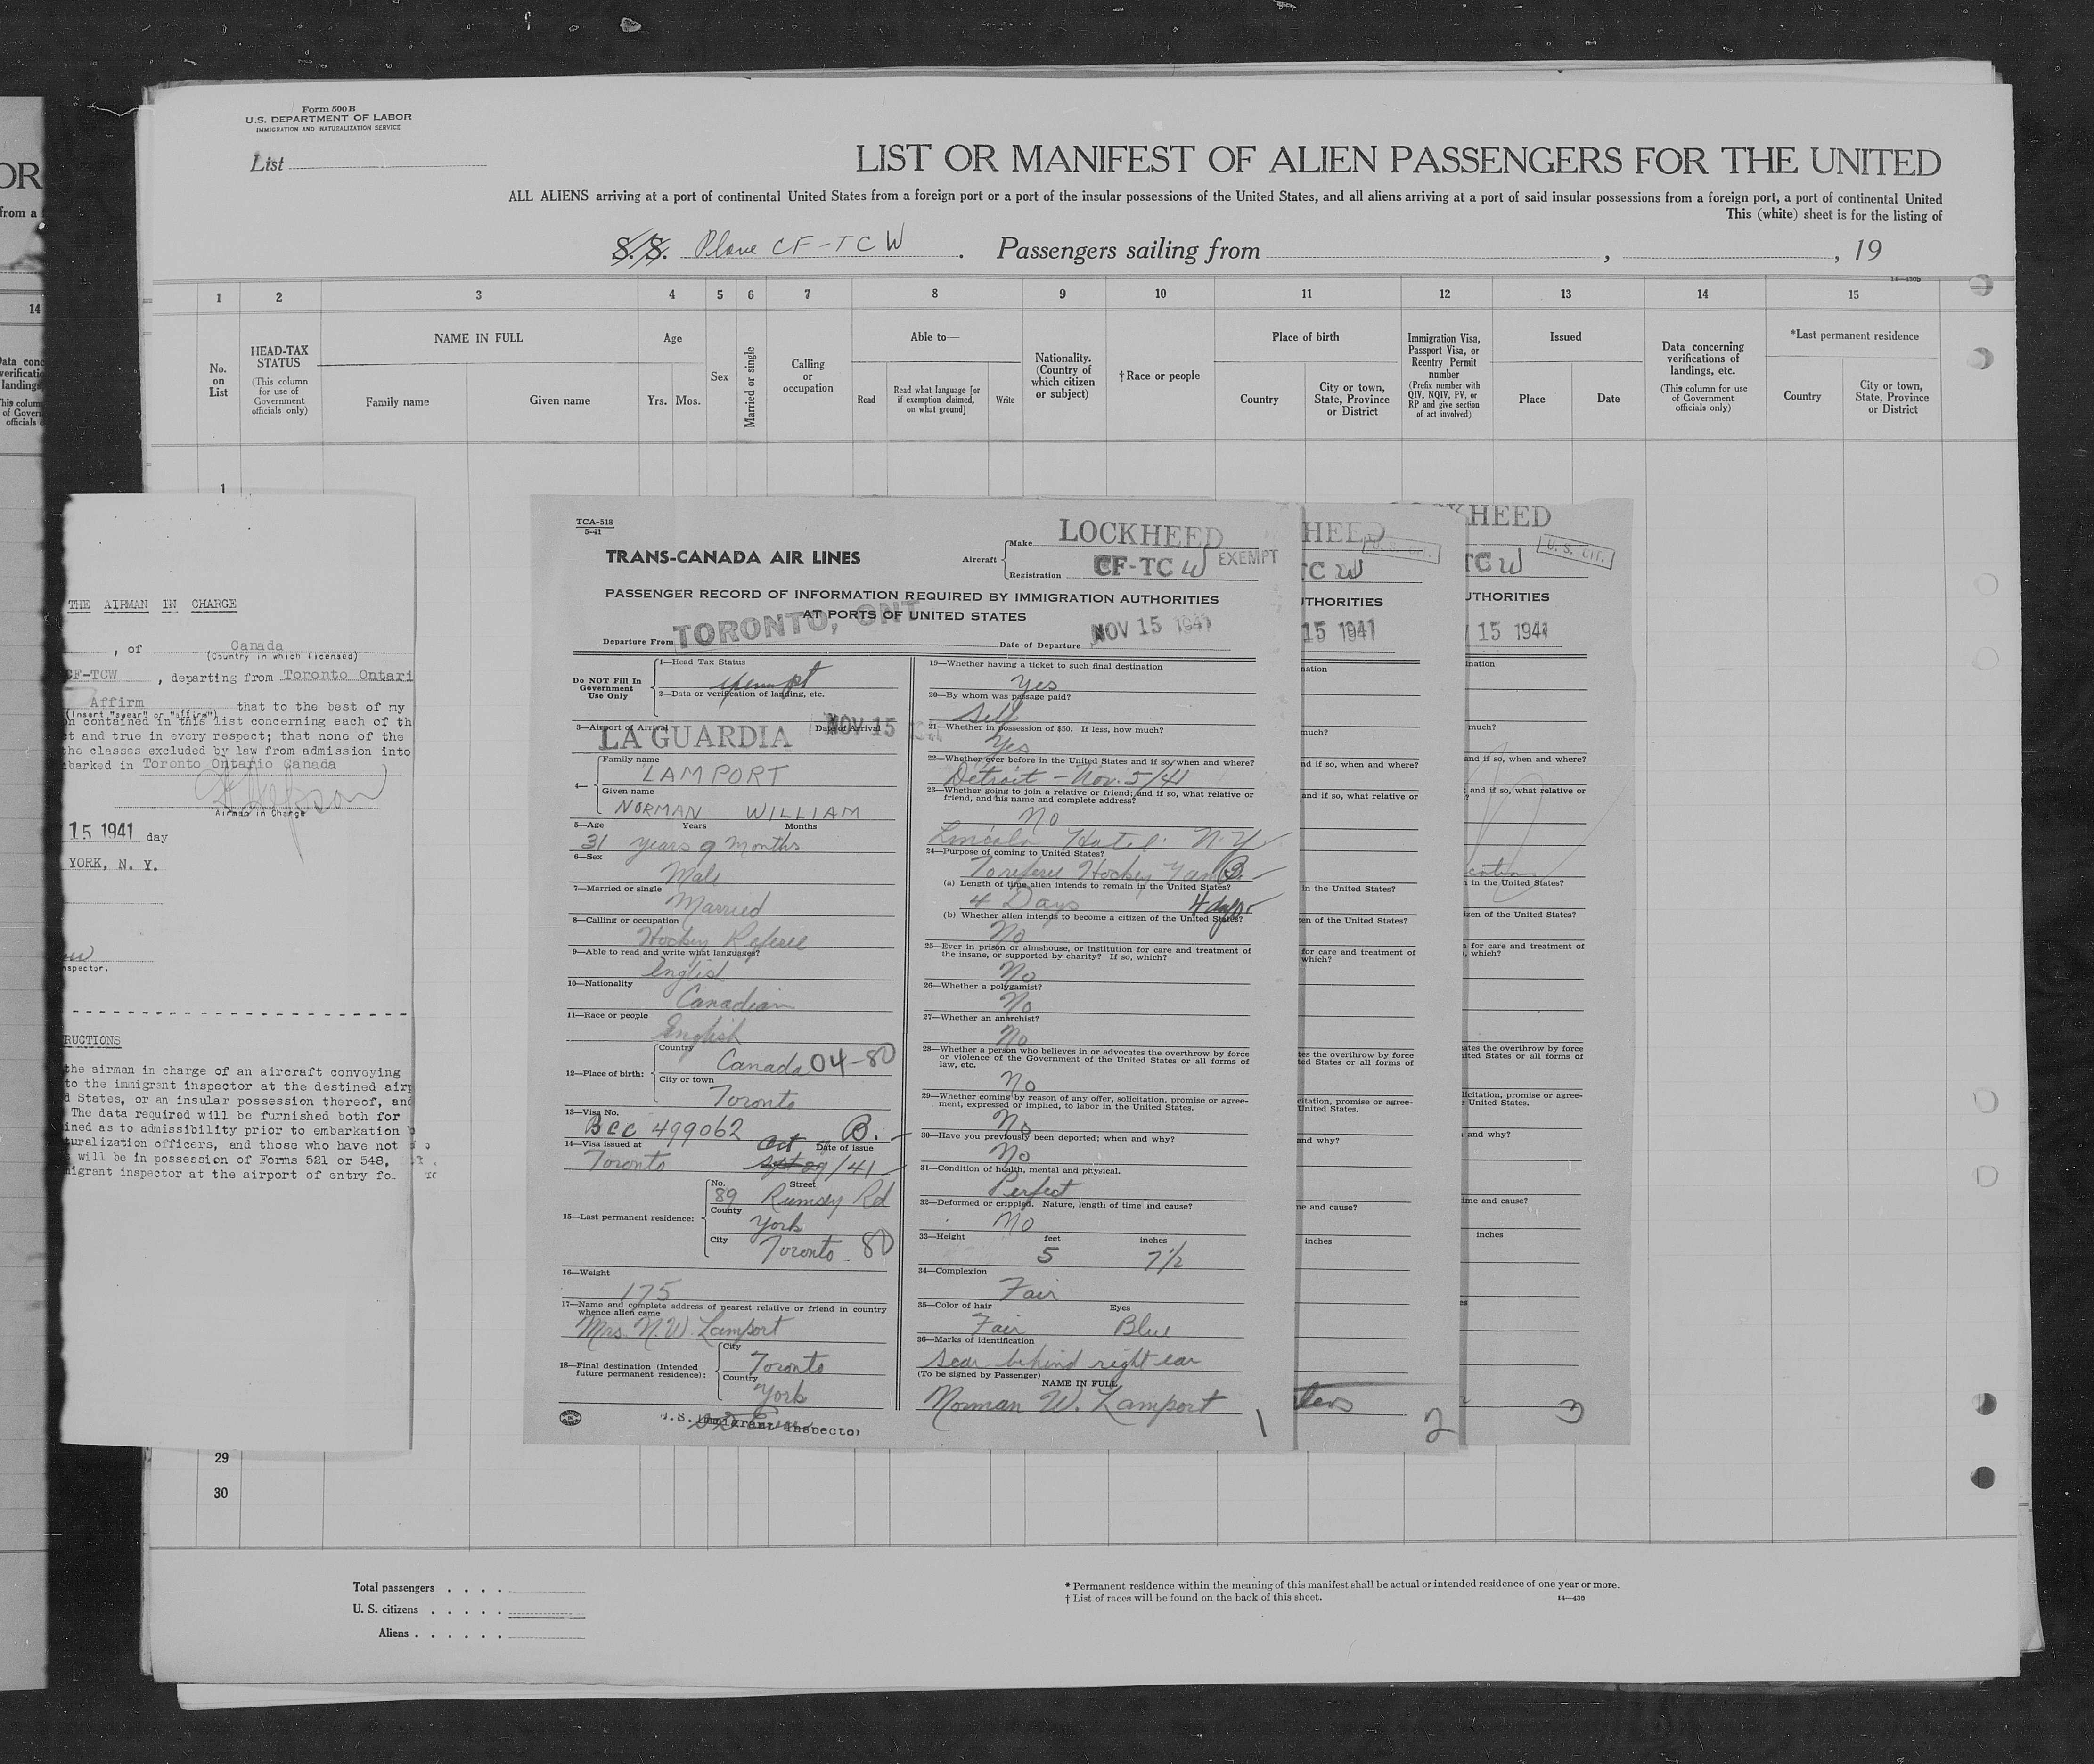 OR
from a
14
Data conc
verificatio
landings
This colum
of Govern
officials o
Form 500 B
U.S. DEPARTMENT OF LABOR
IMMIGRATION AND NATURALIZATION SERVICE
List
LIST OR MANIFEST OF ALIEN PASSENGERS FOR THE UNITED
ALL ALIENS arriving at a port of continental United States from a foreign port or a port of the insular possessions of the United States, and all aliens arriving at a port of said insular possessions from a foreign port, a port of continental United
This (white) sheet is for the listing of
S.S. Plane CF-TCW . Passengers sailing from , , 19
14—430b
1 2 3 4 5 6 7 8 9 10 11 12 13 14 15
No. on List
HEAD-TAX STATUS
(This column for use of Government officials only)
NAME IN FULL
Family name Given name
Age
Yrs. Mos.
Sex
Married or single
Calling or occupation
Able to—
Read
Read what language [or if exemption claimed, on what ground]
Write
Nationality. (Country of which citizen or subject)
†Race or people
Place of birth
Country
City or town, State, Province or District
Immigration Visa, Passport Visa, or Reentry Permit number
(Prefix number with QIV, NQIV, PV, or RP and give section of act involved)
Issued
Place Date
Data concerning verifications of landings, etc.
(This column for use of Government officials only)
*Last permanent residence
Country
City or town, State, Province or District
1
THE AIRMAN IN CHARGE
, of Canada
(Country in which licensed)
CF-TCW , departing from Toronto Ontari
Affirm that to the best of my
(Insert "swear" or "affirm")
on contained in this list concerning each of th
t and true in every respect; that none of the
the classes excluded by law from admission into
barked in Toronto Ontario Canada
Airman in Charge
15 1941 day
YORK, N. Y.
nspector.
RUCTIONS
the airman in charge of an aircraft conveying
to the immigrant inspector at the destined airp
d States, or an insular possession thereof, and
The data required will be furnished both for
ined as to admissibility prior to embarkation
turalization officers, and those who have not
will be in possession of Forms 521 or 548,
migrant inspector at the airport of entry fo
TCA-518
5-41
TRANS-CANADA AIR LINES
Aircraft
Make LOCKHEED
Registration CF-TCW EXEMPT
PASSENGER RECORD OF INFORMATION REQUIRED BY IMMIGRATION AUTHORITIES
AT PORTS OF UNITED STATES
Departure From TORONTO, ONT Date of Departure NOV 15 1941
Do NOT Fill In Government Use Only
1—Head Tax Status
exempt
2—Data or verification of landing, etc.
3—Airport of Arrival Date of Arrival
LA GUARDIA NOV 15
4—
Family name
LAMPORT
Given name
NORMAN WILLIAM
5—Age Years Months
31 years 9 months
6—Sex
Male
7—Married or single
Married
8—Calling or occupation
Hockey Referee
9—Able to read and write what languages?
English
10—Nationality
Canadian
11—Race or people
English
12—Place of birth:
Country
Canada 04-80
City or town
Toronto
13—Visa No.
BCC 499062 B.
14—Visa issued at Date of issue
Toronto Oct Sept 29/41
15—Last permanent residence:
No. Street
89 Rumsey Rd
County
York
City
Toronto 80
16—Weight
175
17—Name and complete address of nearest relative or friend in country whence alien came
Mrs. N.W. Lamport
18—Final destination (Intended future permanent residence):
City
Toronto
Country
York
U.S. Immigrant Inspector
19—Whether having a ticket to such final destination
Yes
20—By whom was passage paid?
Self
21—Whether in possession of $50. If less, how much?
Yes
22—Whether ever before in the United States and if so, when and where?
Detroit - Nov. 5/41
23—Whether going to join a relative or friend; and if so, what relative or friend, and his name and complete address?
No
Lincoln Hotel N.Y
24—Purpose of coming to United States?
To referee Hockey Game B.
(a) Length of time alien intends to remain in the United States?
4 Days 4 days
(b) Whether alien intends to become a citizen of the United States?
No
25—Ever in prison or almshouse, or institution for care and treatment of the insane, or supported by charity? If so, which?
No
26—Whether a polygamist?
No
27—Whether an anarchist?
No
28—Whether a person who believes in or advocates the overthrow by force or violence of the Government of the United States or all forms of law, etc.
No
29—Whether coming by reason of any offer, solicitation, promise or agreement, expressed or implied, to labor in the United States.
No
30—Have you previously been deported; when and why?
No
31—Condition of health, mental and physical.
Perfect
32—Deformed or crippled. Nature, length of time and cause?
No
33—Height feet inches
5 7½
34—Complexion
Fair
35—Color of hair Eyes
Fair Blue
36—Marks of identification
Scar behind right ear
(To be signed by Passenger)
NAME IN FULL
Norman W. Lamport
1
HEED
U. S. CIT.
TC W
THORITIES
15 1941
nation
much?
nd if so, when and where?
and if so, what relative or
in the United States?
en of the United States?
for care and treatment of
which?
tes the overthrow by force
ted States or all forms of
citation, promise or agree-
United States.
and why?
ne and cause?
inches
2
KHEED
U. S. CIT.
TC W
UTHORITIES
15 1941
ination
much?
and if so, when and where?
and if so, what relative or
n in the United States?
izen of the United States?
for care and treatment of
, which?
ates the overthrow by force
ited States or all forms of
licitation, promise or agree-
United States.
and why?
ime and cause?
inches
es
3
29
30
Total passengers . . . .
U. S. citizens . . . . .
Aliens . . . . . .
* Permanent residence within the meaning of this manifest shall be actual or intended residence of one year or more.
† List of races will be found on the back of this sheet.
14—430